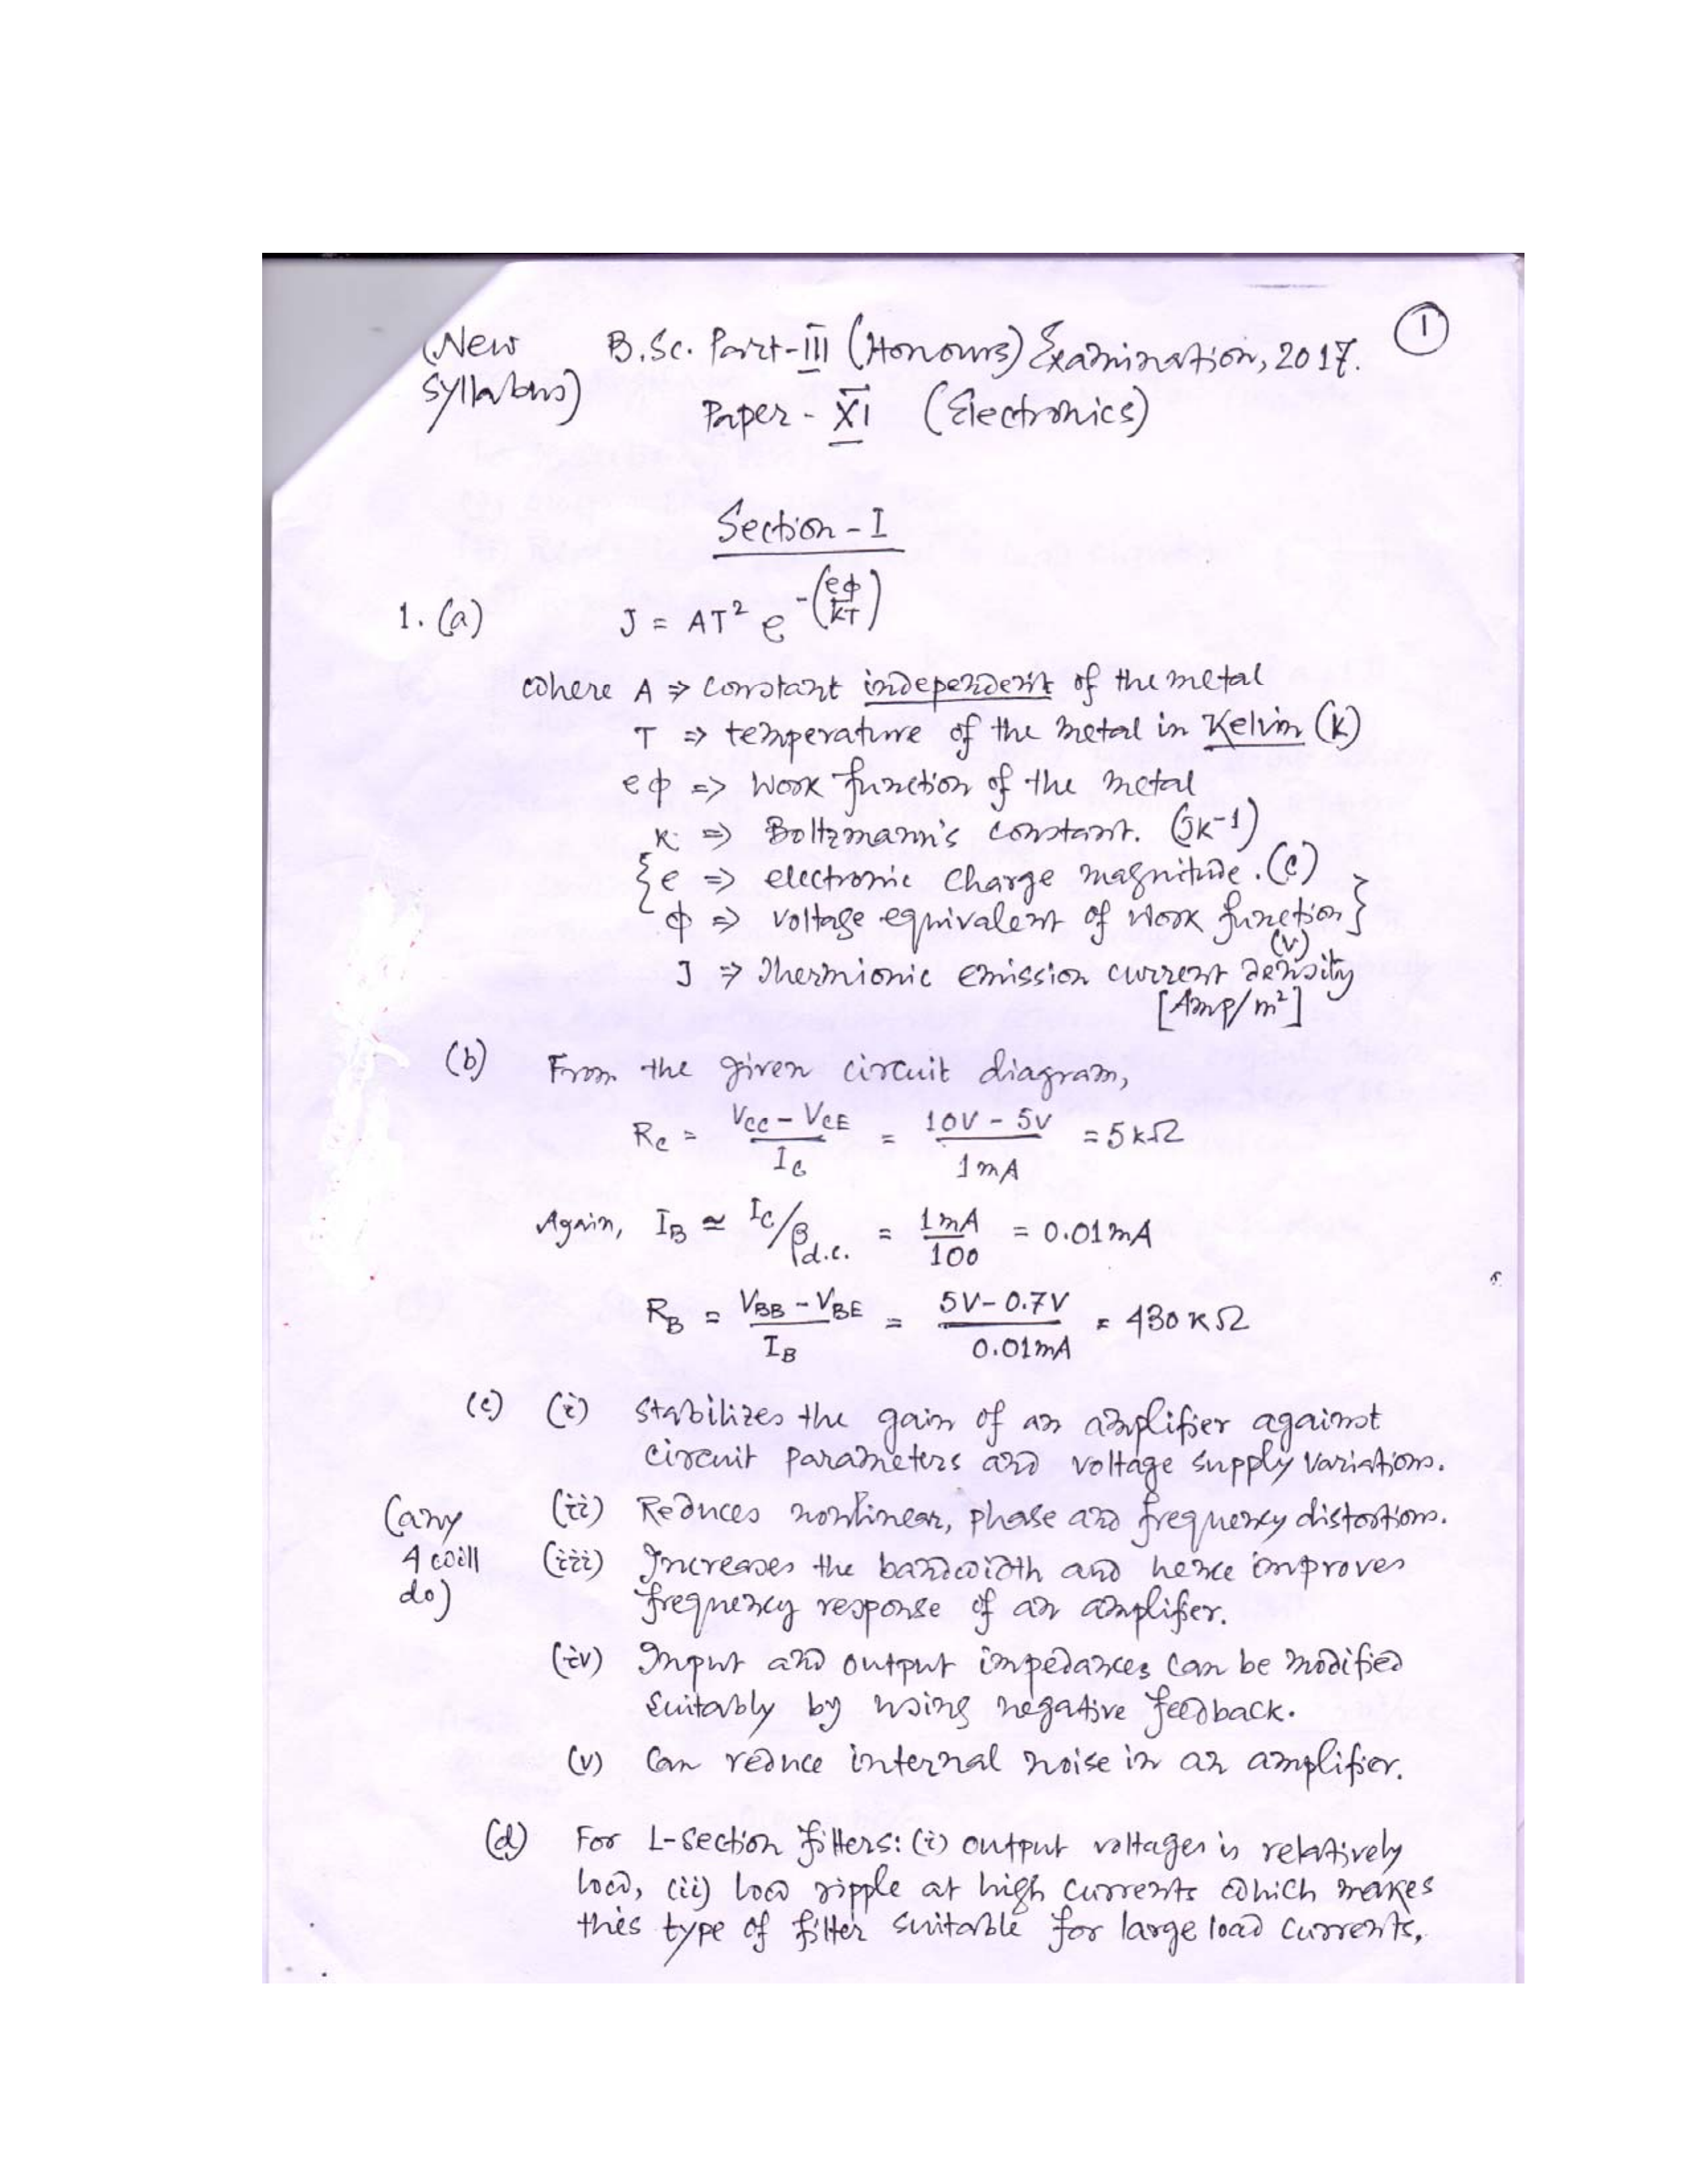 (New B.Sc. Part-III (Honours) Examination, 2017. 1
Syllabus) Paper - XI (Electronics)
Section - I
1. (a) J = AT² e^-(eφ/kT)
where A ⇒ constant independent of the metal
T ⇒ temperature of the metal in Kelvin (K)
eφ ⇒ Work function of the metal
k ⇒ Boltzmann's constant. (JK⁻¹)
{e ⇒ electronic charge magnitude. (C)
φ ⇒ voltage equivalent of Work function}
(V)
J ⇒ Thermionic emission current density
[Amp/m²]
(b) From the given circuit diagram,
R_C = (V_CC - V_CE)/I_C = (10V - 5V)/1mA = 5kΩ
Again, I_B ≃ I_C/β_d.c. = 1mA/100 = 0.01mA
R_B = (V_BB - V_BE)/I_B = (5V - 0.7V)/0.01mA = 430 KΩ
(c) (i) Stabilizes the gain of an amplifier against
circuit parameters and voltage supply variations.
(any (ii) Reduces nonlinear, phase and frequency distortions.
4 will (iii) Increases the bandwidth and hence improves
do) frequency response of an amplifier.
(iv) Input and output impedances can be modified
suitably by using negative feedback.
(v) Can reduce internal noise in an amplifier.
(d) For L-section filters: (i) output voltages is relatively
low, (ii) low ripple at high currents which makes
this type of filter suitable for large load currents,